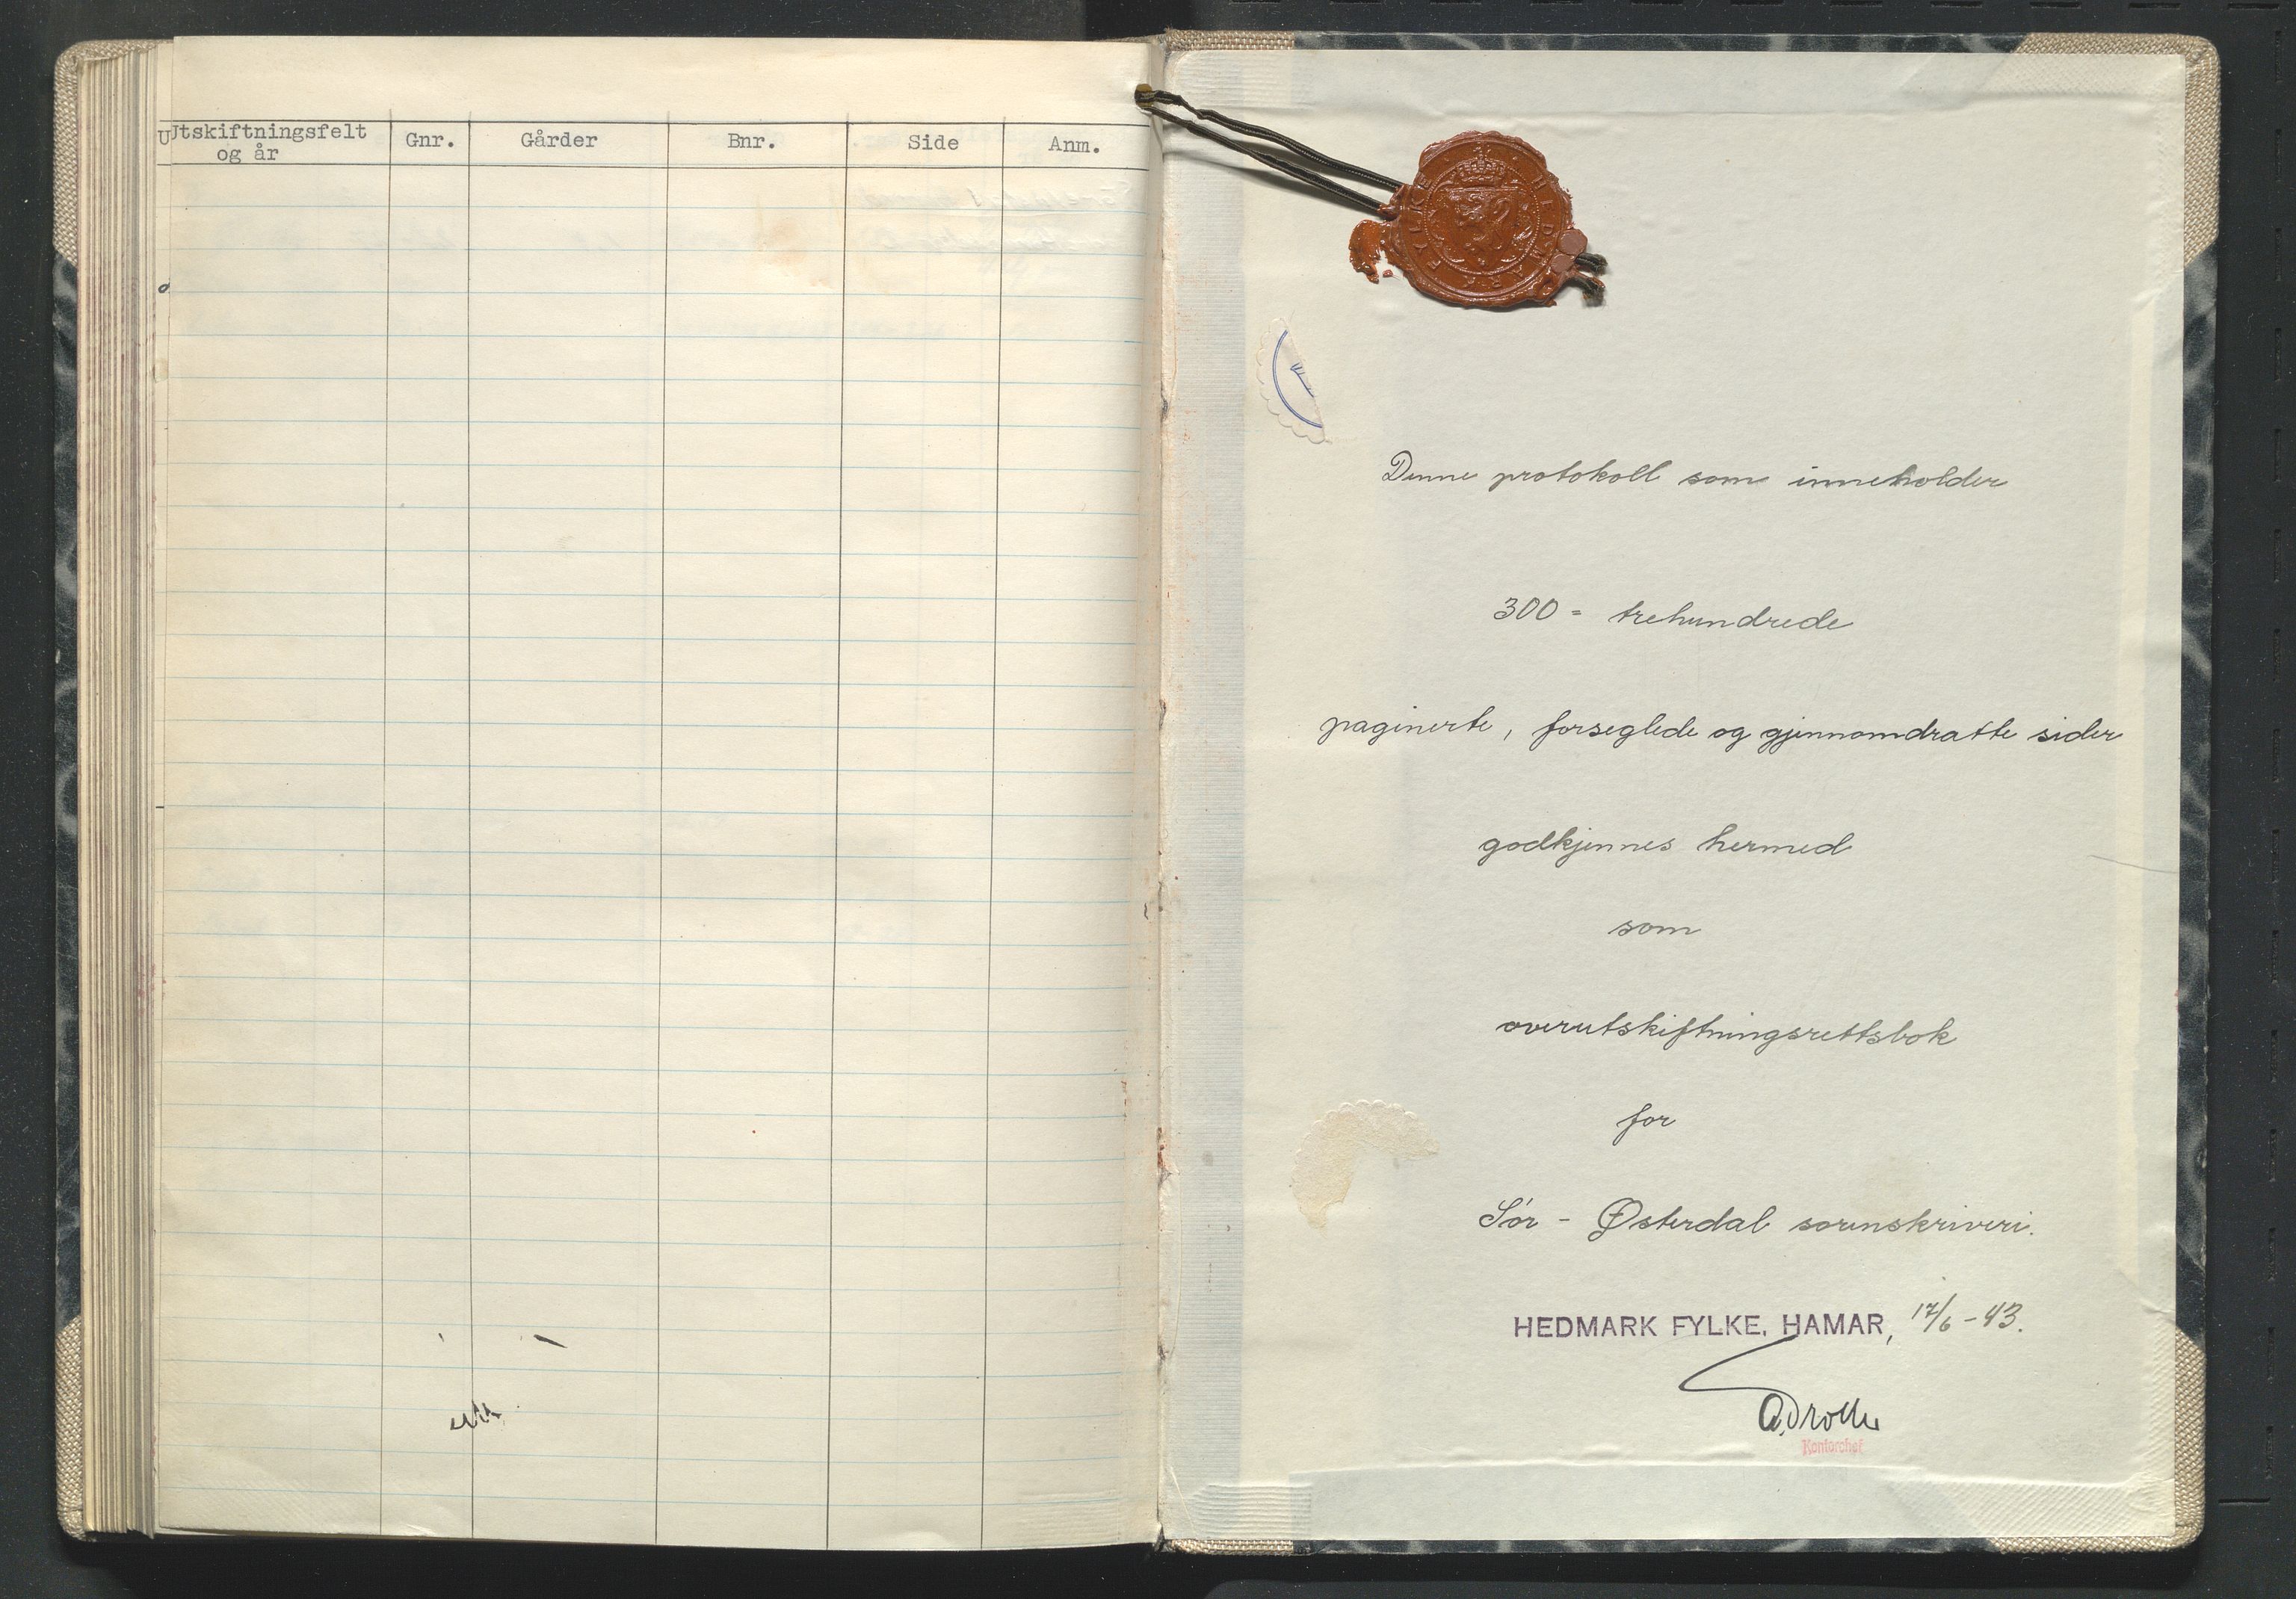 Utskiftningsfelt
og år
Gnr.
Gårder
Bnr.
Side
Anm.
HEDMARK FYLKE
Denne protokoll som inneholder
300 = trehundrede
paginerte, forseglede og gjennomdratte sider
godkjennes hermed
som
overutskiftningsrettsbok
for
Sør - Østerdal sorenskriveri.
HEDMARK FYLKE, HAMAR, 17/6 - 43.
Kontorchef